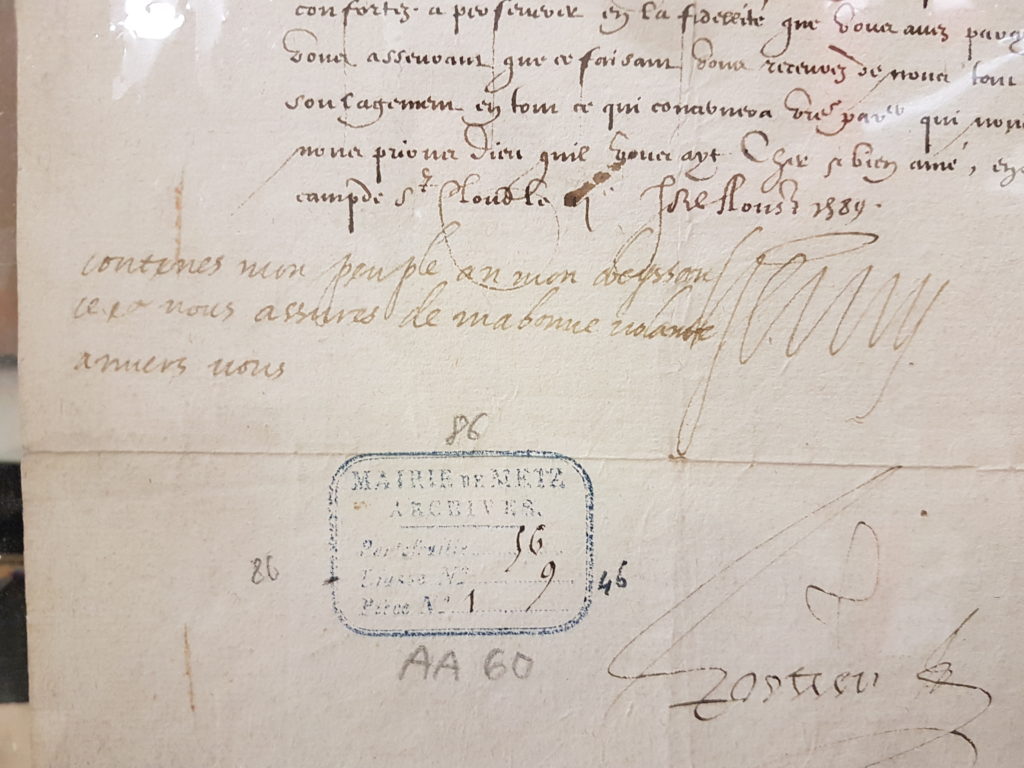 confortez a perseverer en la fidellité que vous avez
vous asseurant que ce faisant vous recevrez de nous tout
soulagement en tout ce qui concernera vre qui nous
nous prions Dieu quil vous ayt Cher et bien amé, en
camp de St Cloud le Jo.r d'Aoust 1589.
contenes mon peuple an mon obeyssan
ce et vous assures de ma bonne volante
anvers vous
Henry
86
MAIRIE DE METZ
ARCHIVES.
Portefeuille 56
86
Liasse No 9
46
Pièce No 1
AA 60